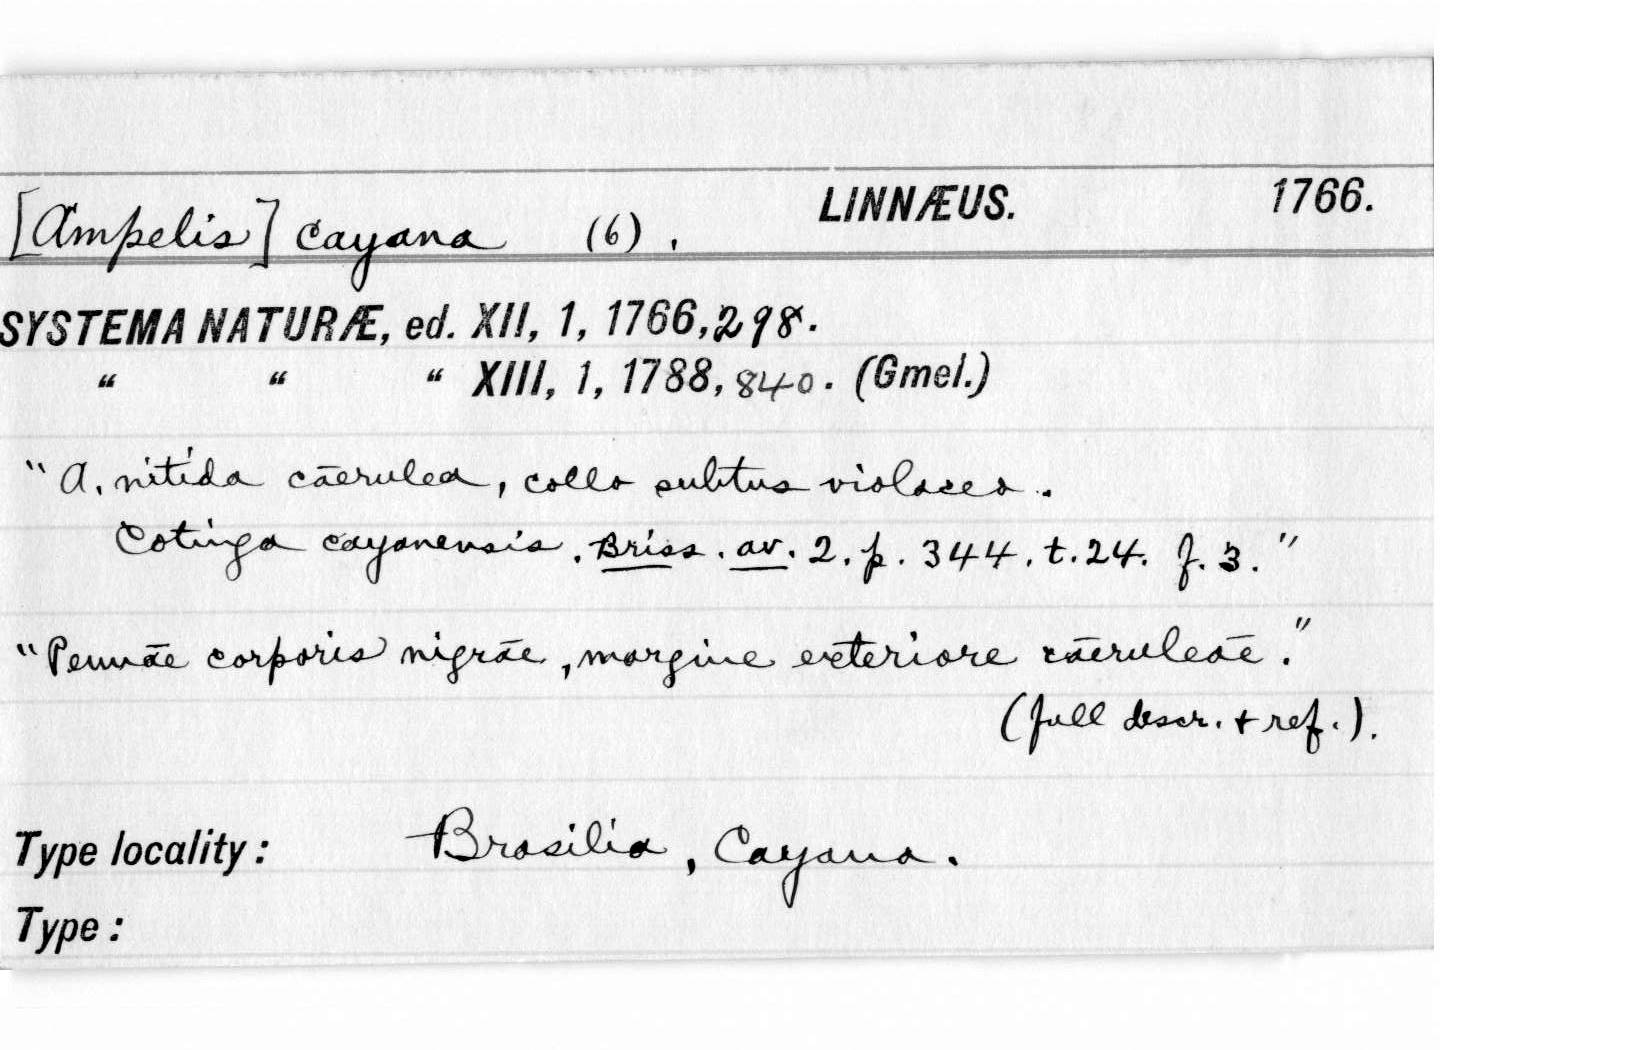 [Ampelis] cayana (6). LINNÆUS. 1766.
SYSTEMA NATURÆ, ed. XII, 1, 1766, 298.
“ “ “ XIII, 1, 1788, 840. (Gmel.)
"A. nitida cāerulea, collo subtus violacea.
Cotinga cayanensis. Briss. av. 2. p. 344. t. 24. f. 3."
"Pennāe corporis nigrāe, margine exteriore cāeruleāe."
(full descr. + ref.).
Type locality: Brasilia, Cayana.
Type: